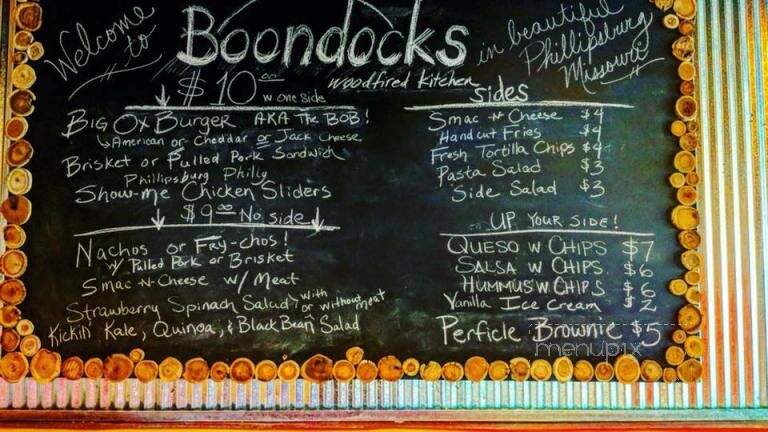 Welcome to
Boondocks
woodfired Kitchen
in beautiful
Phillipsburg
Missouri
$10.00
w one side
Big Ox Burger AKA The BOB!
American or Cheddar or Jack Cheese
Brisket or Pulled Pork Sandwich
Phillipsburg Philly
Show-me Chicken Sliders
$9.00 No side
Nachos or Fry-chos!
w/ Pulled Pork or Brisket
Smac-N-Cheese w/ Meat
Strawberry Spinach Salad with or without meat
Kickin' Kale, Quinoa, & Black Bean Salad
sides
Smac-N-Cheese $4
Handcut Fries $4
Fresh Tortilla Chips $4
Pasta Salad $3
Side Salad $3
UP YOUR SIDE!
QUESO W CHIPS $7
SALSA W CHIPS $6
HUMMUS W CHIPS $6
Vanilla Ice Cream $2
Perficle Brownie $5
menupix